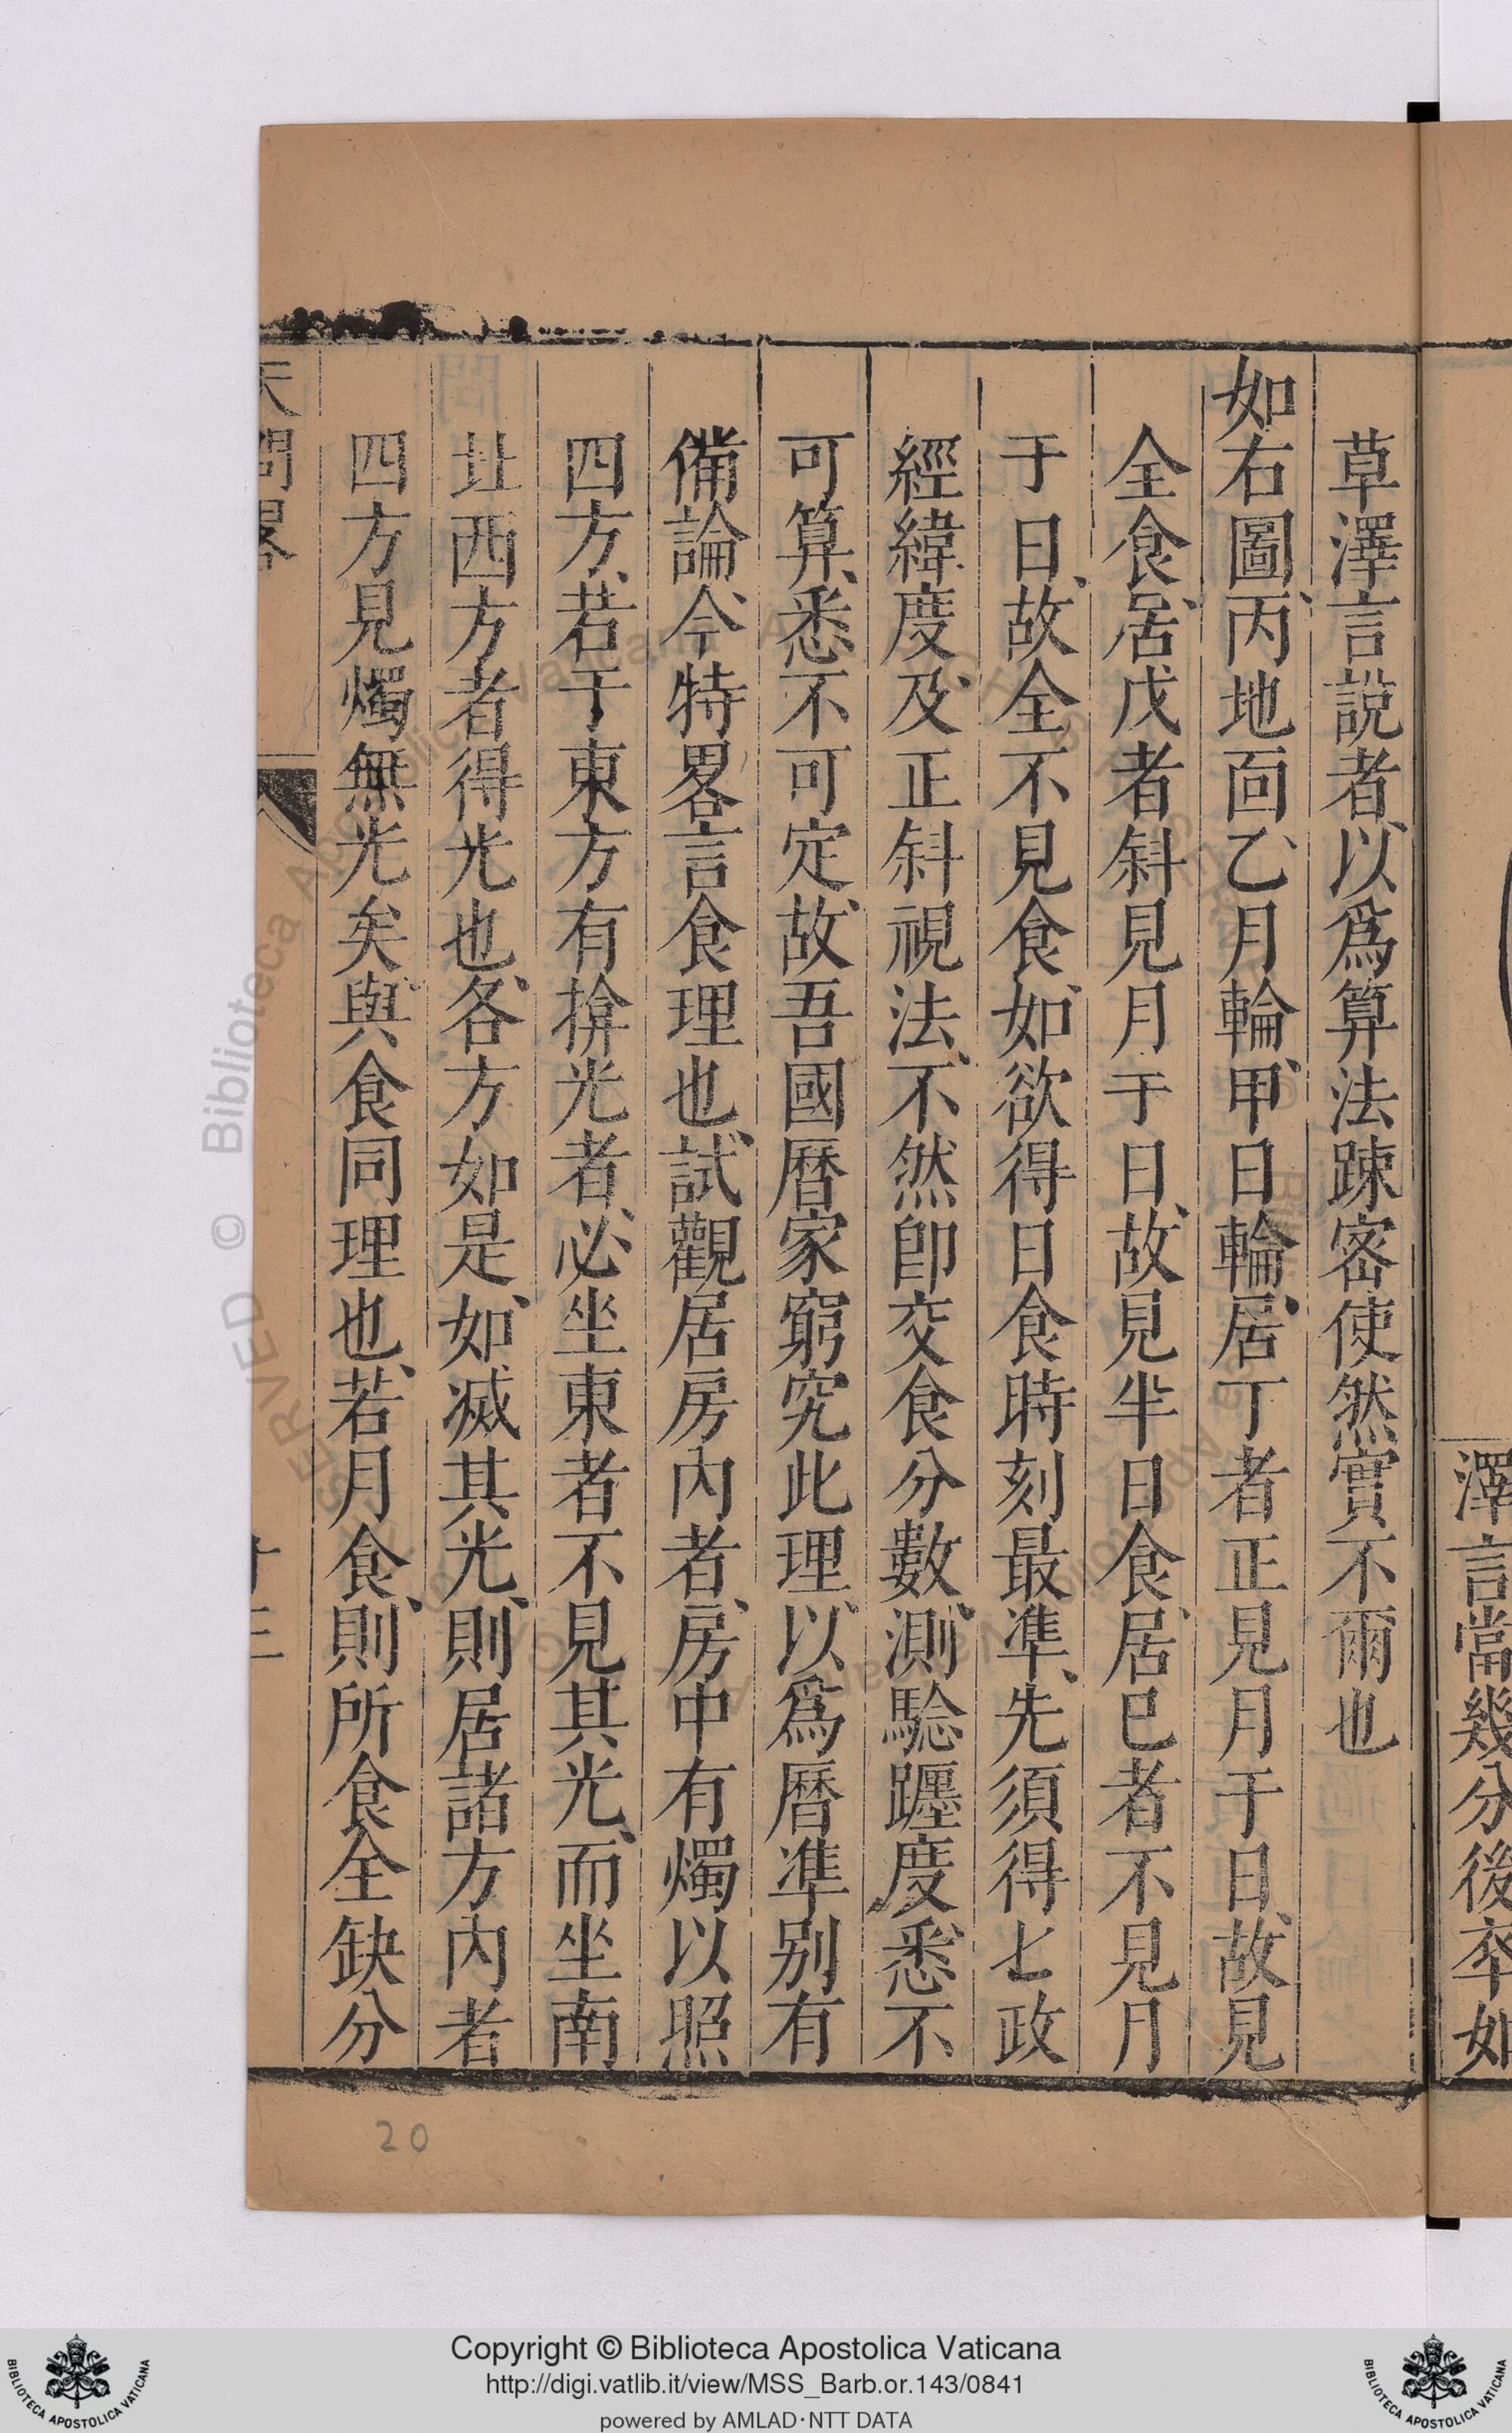 澤言當幾分後卒如
草澤言說者、以爲算法踈宻使然實不爾也
如右圖、丙地靣乙、月輪、甲日輪、居丁者正見月于日、故見
全食、居戊者斜見月于日、故見半日食、居巳者不見月
于日、故全不見食、如欲得日食時刻最凖、先須得七政
經緯度及、正斜視法、不然卽交食分數、測騐躔度悉、不
可算、悉不可定、故吾國曆家窮究此理、以爲曆凖别有
備論、今特畧言食理也、試觀居房内者、房中有燭以照
四方、若于東方有揜光者、必坐東者不見其光、而坐南
北西方者得光也、各方如是、如滅其光、則居諸方内者
四方見燭無光矣、與食同理也、若月食、則所食全缺分
天問畧
十三
20
© Biblioteca Apostolica Vaticana
Copyright © Biblioteca Apostolica Vaticana
http://digi.vatlib.it/view/MSS_Barb.or.143/0841
powered by AMLAD·NTT DATA
BIBLIOTECA APOSTOLICA VATICANA
BIBLIOTECA APOSTOLICA VATICANA